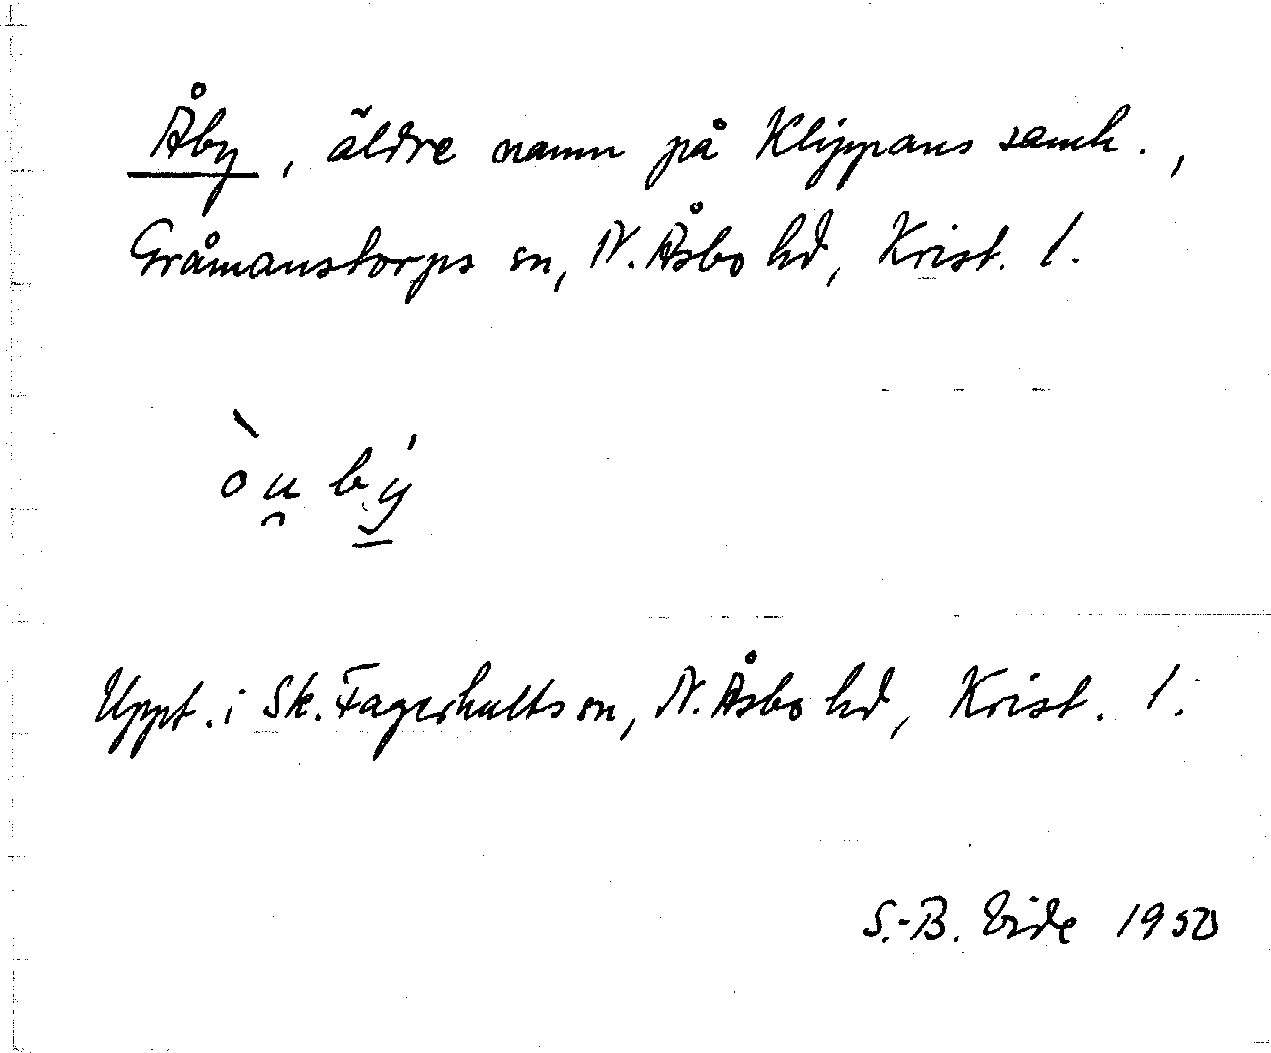 Åby, äldre namn på Klippans samh.,
Gråmanstorps sn, N. Åsbo hd, Krist. l.
òu̯ bý̱
Uppt. i Sk. Fagerhults sn, N. Åsbo hd, Krist. l.
S.-B. Vide 1950